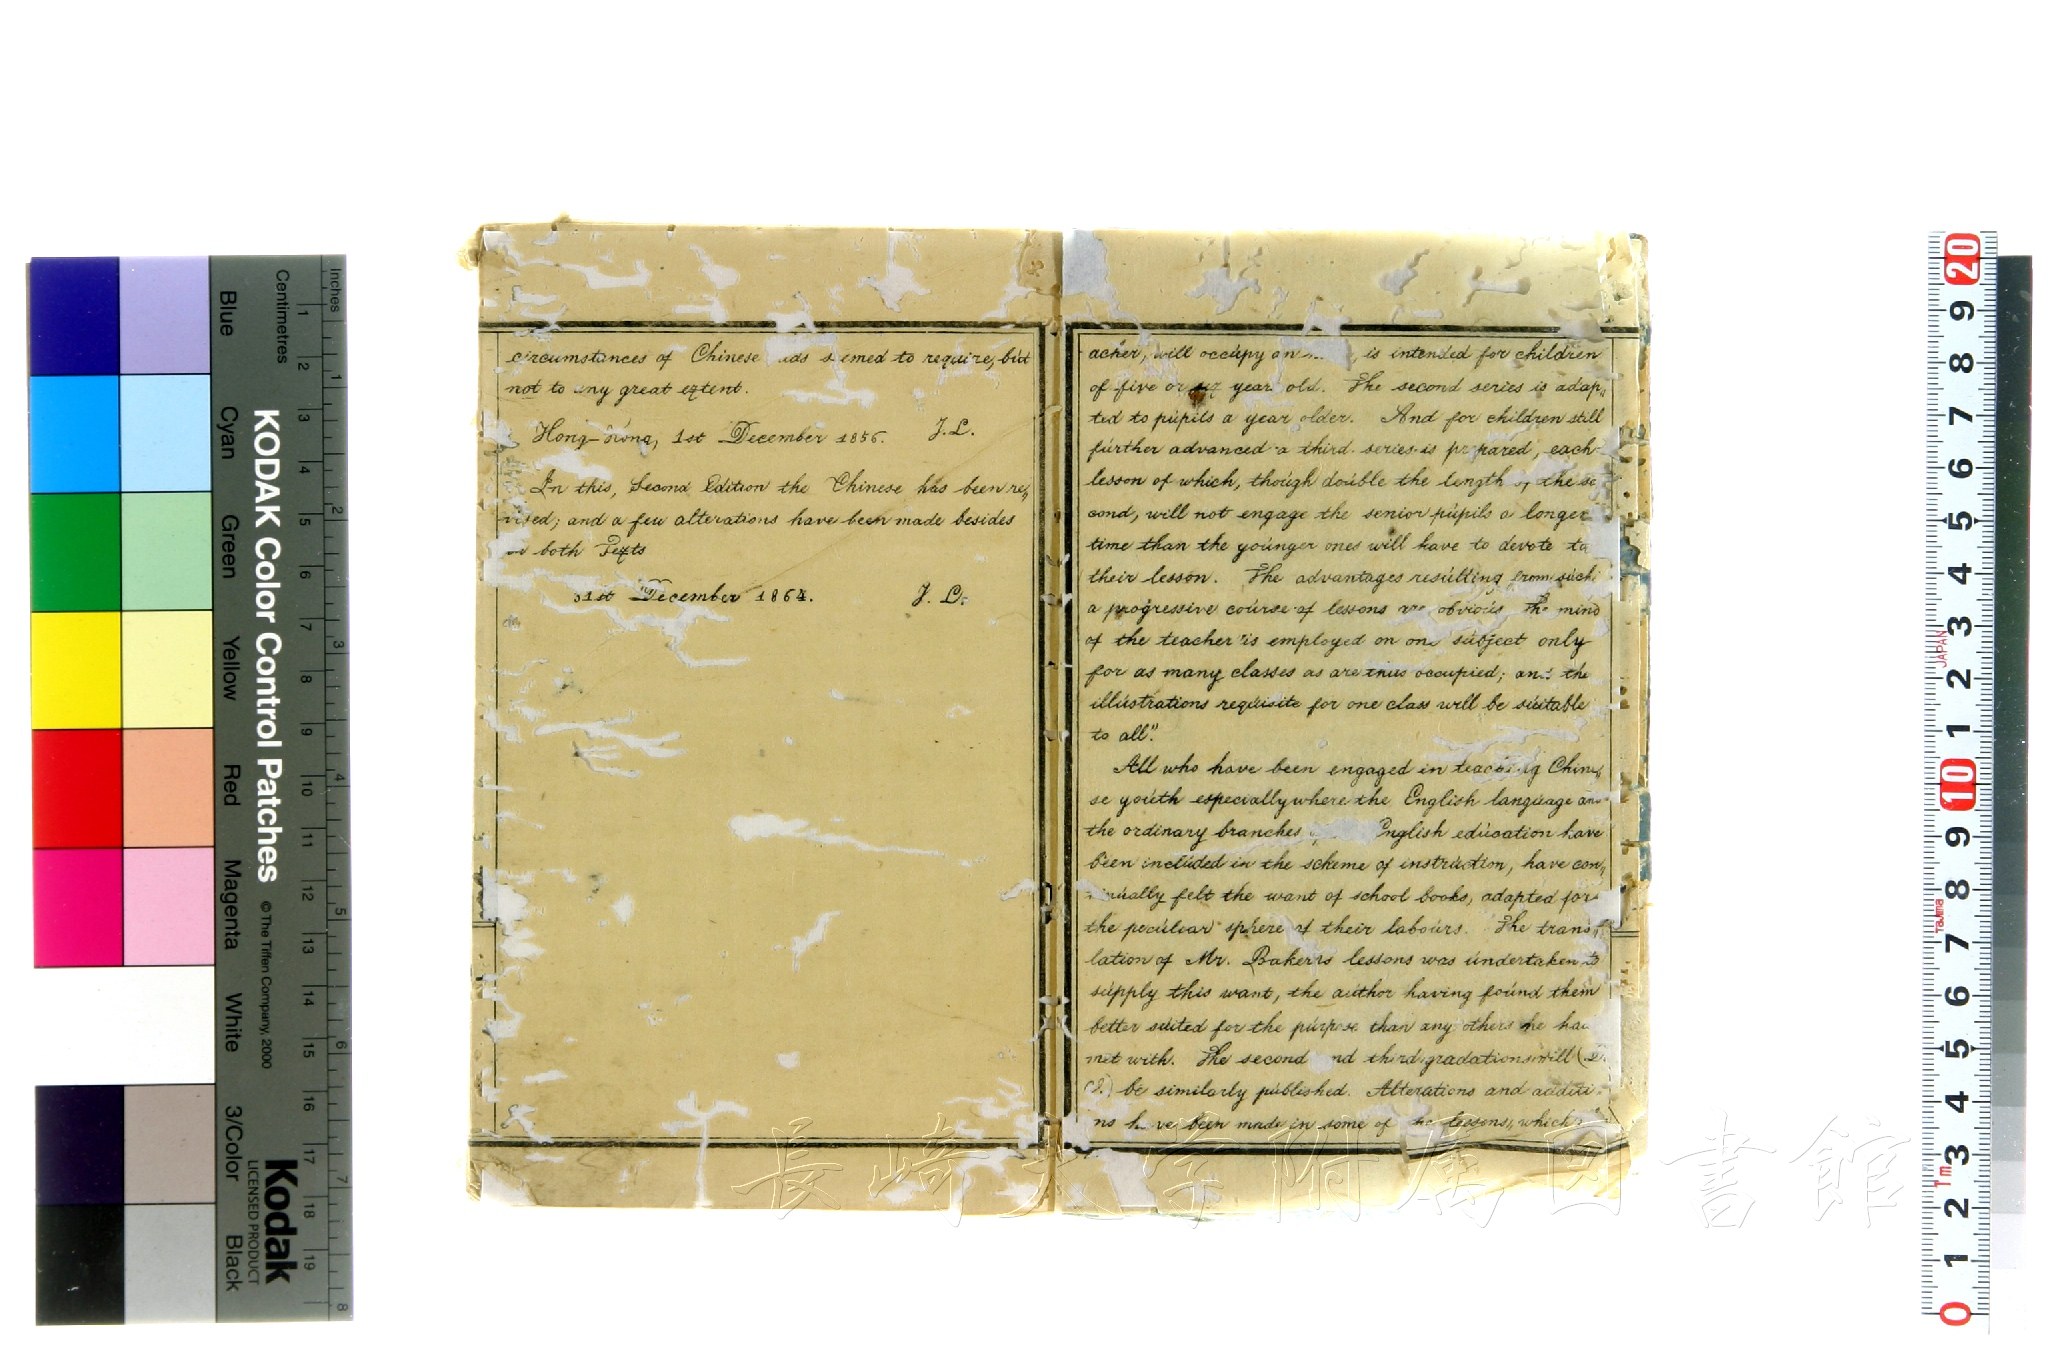 circumstances of Chinese lads seemed to require, but
not to any great extent.
Hong-Kong, 1st December 1856. J.L.
In this, Second Edition the Chinese has been re,,
vised; and a few alterations have been made besides
both Texts
31st December 1864. J. L.
acher, will occupy is intended for children
of five or six year old. The second series is adap,,
ted to pupils a year older. And for children still
further advanced a third series is prepared, each
lesson of which, though double the length of the se
cond, will not engage the senior pupils a longer
time than the younger ones will have to devote to
their lesson. The advantages resulting from such
a progressive course of lessons are obvious The mind
of the teacher is employed on one subject only
for as many classes as are thus occupied; and the
illustrations requisite for one class will be suitable
to all".
All who have been engaged in teaching Chine
se youth especially where the English language and
the ordinary branches English education have
been included in the scheme of instruction, have con,,
tinually felt the want of school books, adapted for
the peculear sphere of their labours. The trans,,
lation of Mr. Baker's lessons was undertaken to
supply this want, the author having found them
better suited for the purpose than any others he had
met with. The second and third gradations will (D.
V.) be similarly published. Alterations and additi
ns have been made in some of the lessons, which
KODAK Color Control Patches
© The Tiffen Company, 2000
Kodak
LICENSED PRODUCT
Inches
Centimetres
Blue
Cyan
Green
Yellow
Red
Magenta
White
3/Color
Black
1 2 3 4 5 6 7 8 9 10 11 12 13 14 15 16 17 18 19
1 2 3 4 5 6 7 8
20
9
8
7
6
5
4
3
2
1
10
9
8
7
6
5
4
3
2
1
0
JAPAN
TAJIMA
1m
長崎大学附属図書館